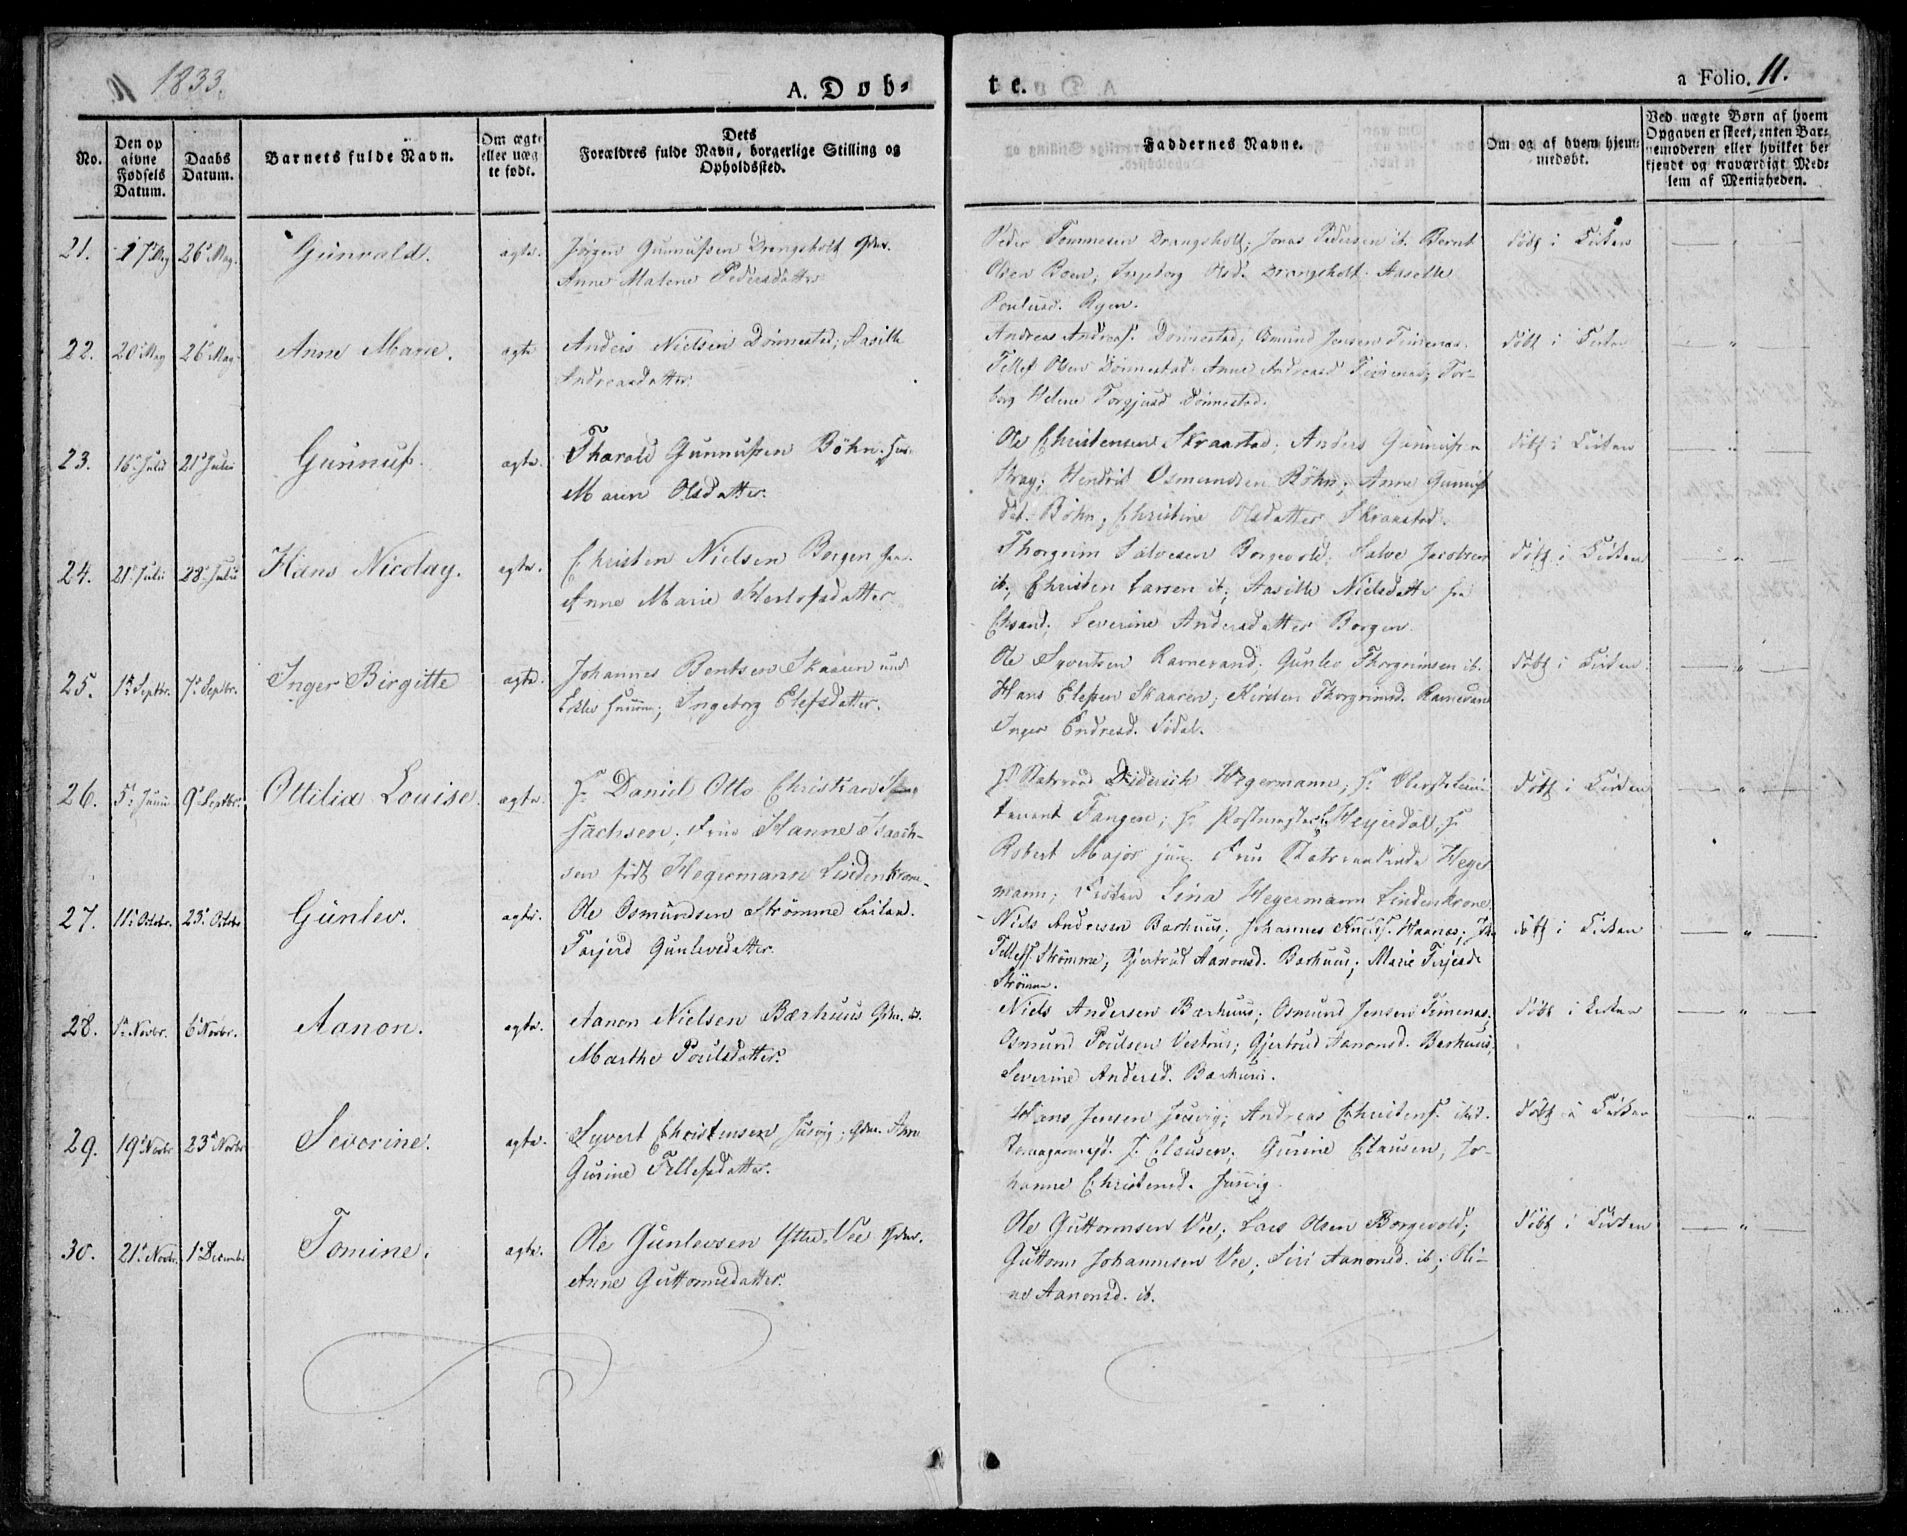 1833.
A. Døb-
te.
a Folio. 11.
No.
Den op
givne
Fødsels
Datum.
Daabs
Datum.
Barnets fulde Navn.
Om ægte
eller uæg
te født.
Dets
Forældres fulde Navn, borgerlige Stilling og
Opholdssted.
Faddernes Navne.
Om og af hvem hjem-
medøbt.
Ved uægte Børn af hvem
Opgaven er skeet, enten Bar-
nemoderen eller hvilket be-
kjendt og troværdigt Med-
lem af Menigheden.
21. 17 May 26 May. Gunvald. ægte. Jørgen Gunnufsen Drangsholt
Anne Malene Pedersdatter
Peder Tommesen Drangsholt; Jonas Pedersen ib. Bernt
Olsen Boen; Ingeborg Olsd. Drangsholt. Aasille
Poulusd. Ryen.
Døbt i Kirken
22. 20 May 26 May. Anne Marie. ægte Anders Nielsen Dønnestad; Aasille
Andreasdatter.
Andreas Andreas. Dønnestad; Osmund Jensen Timenes.
Tellef Olsen Dønnestad. Anne Andreasd Timenes; Tor-
borg Helene Torgjusd Dønnestad.
Døbt i Kirken
23. 16 Juli 21 Julii Gunnuf. ægte. Tharald Gunnufsen Bøhn.
Maren Olsdatter.
Ole Christensen Skraastad; Anders Gunnufsen
Stray; Hendrik Osmundsen Bøhn; Anne Gunnufs
dat. Bøhn; Christine Olsdatter Skraastad.
Døbt i Kirken
24. 21 Julii 28 Julii Hans Nicolay. ægte. Christen Nielsen Borgen
Anne Marie Herlofsdatter.
Thorgrim Salvesen Borgevold; Salve Jacobsen
ib; Christen Larsen ib; Aasille Nielsdatter fra
Chsand; Severine Andersdatter Borgen.
Døbt i Kirken
25. 1 Septbr. 7 Septbr. Inger Birgitte ægte. Johannes Bentsen Skaaren
Ingeborg Elefsdatter.
Ole Syvertsen Ravnevand. Gunlev Thorgrimsen ib.
Hans Elefsen Skaaren; Kirsten Thorgrimsd. Ravnevand
Inger Endresd. Sødal.
Døbt i Kirken
26. 5 Junii 9 Septbr. Ottilia Louise. ægte. Hr. Daniel Otto Christian
Isachsen; Frue Hanne Isaach-
sen født Hegermann Lindenkrone.
Hr. Statsraad Diderich Hegermann; Hr. Oberstlieu
tenant Fangen; Hr. Postmester Heyerdal, Hr.
Robert Major jun. Frue Statsraadinde Heger
mann; Frøken Sina Hegermann Lindenkrone.
Døbt i Kirken
27. 11 Octobr. 23 Octobr Gunlev. ægte. Ole Osmundsen Strømme Leiland.
Tarjerd Gunlevsdatter.
Niels Andersen Barhuus; Johannes Knuds. Haanes;
Tellefs. Strømme; Gjertrud Aanonsd. Barhuus; Marie Terjesd.
Strømme.
Døbt i Kirken
28. 1 Novbr. 6 Novbr. Aanon. ægte. Aanon Nielsen Bærhuus
Marthe Poulsdatter.
Niels Andersen Barhuus; Osmund Jensen Timenes;
Osmund Poulsen Vestrus; Gjertrud Aanonsd. Barhuus;
Severine Andersd. Barhuus.
Døbt i Kirken
29. 19 Novbr 23 Novbr Severine. ægte. Syvert Christensen Justvig; Anne
Gurine Tellefsdatter.
Hans Jensen Justvig; Andreas Christens.
Clausen; Gurine Clausen, Jo-
hanne Christensd. Justvig.
Døbt i Kirken
30. 21 Novbr. 1 December Tomine. ægte. Ole Gunlevsen Ytre Vee
Anne Guttormsdatter.
Ole Guttormsen Vee; Lars Olsen Borgevold;
Guttorm Johannesen Vee; Siri Aanonsd. ib; Oli-
ne Aanonsd. ib.
Døbt i Kirken